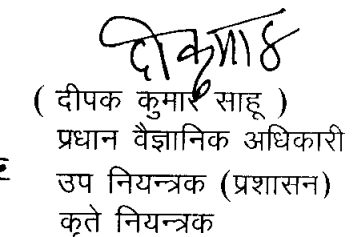 ( दीपक कुमार साहू )
प्रधान वैज्ञानिक अधिकारी
उप नियन्त्रक (प्रशासन)
कृते नियन्त्रक